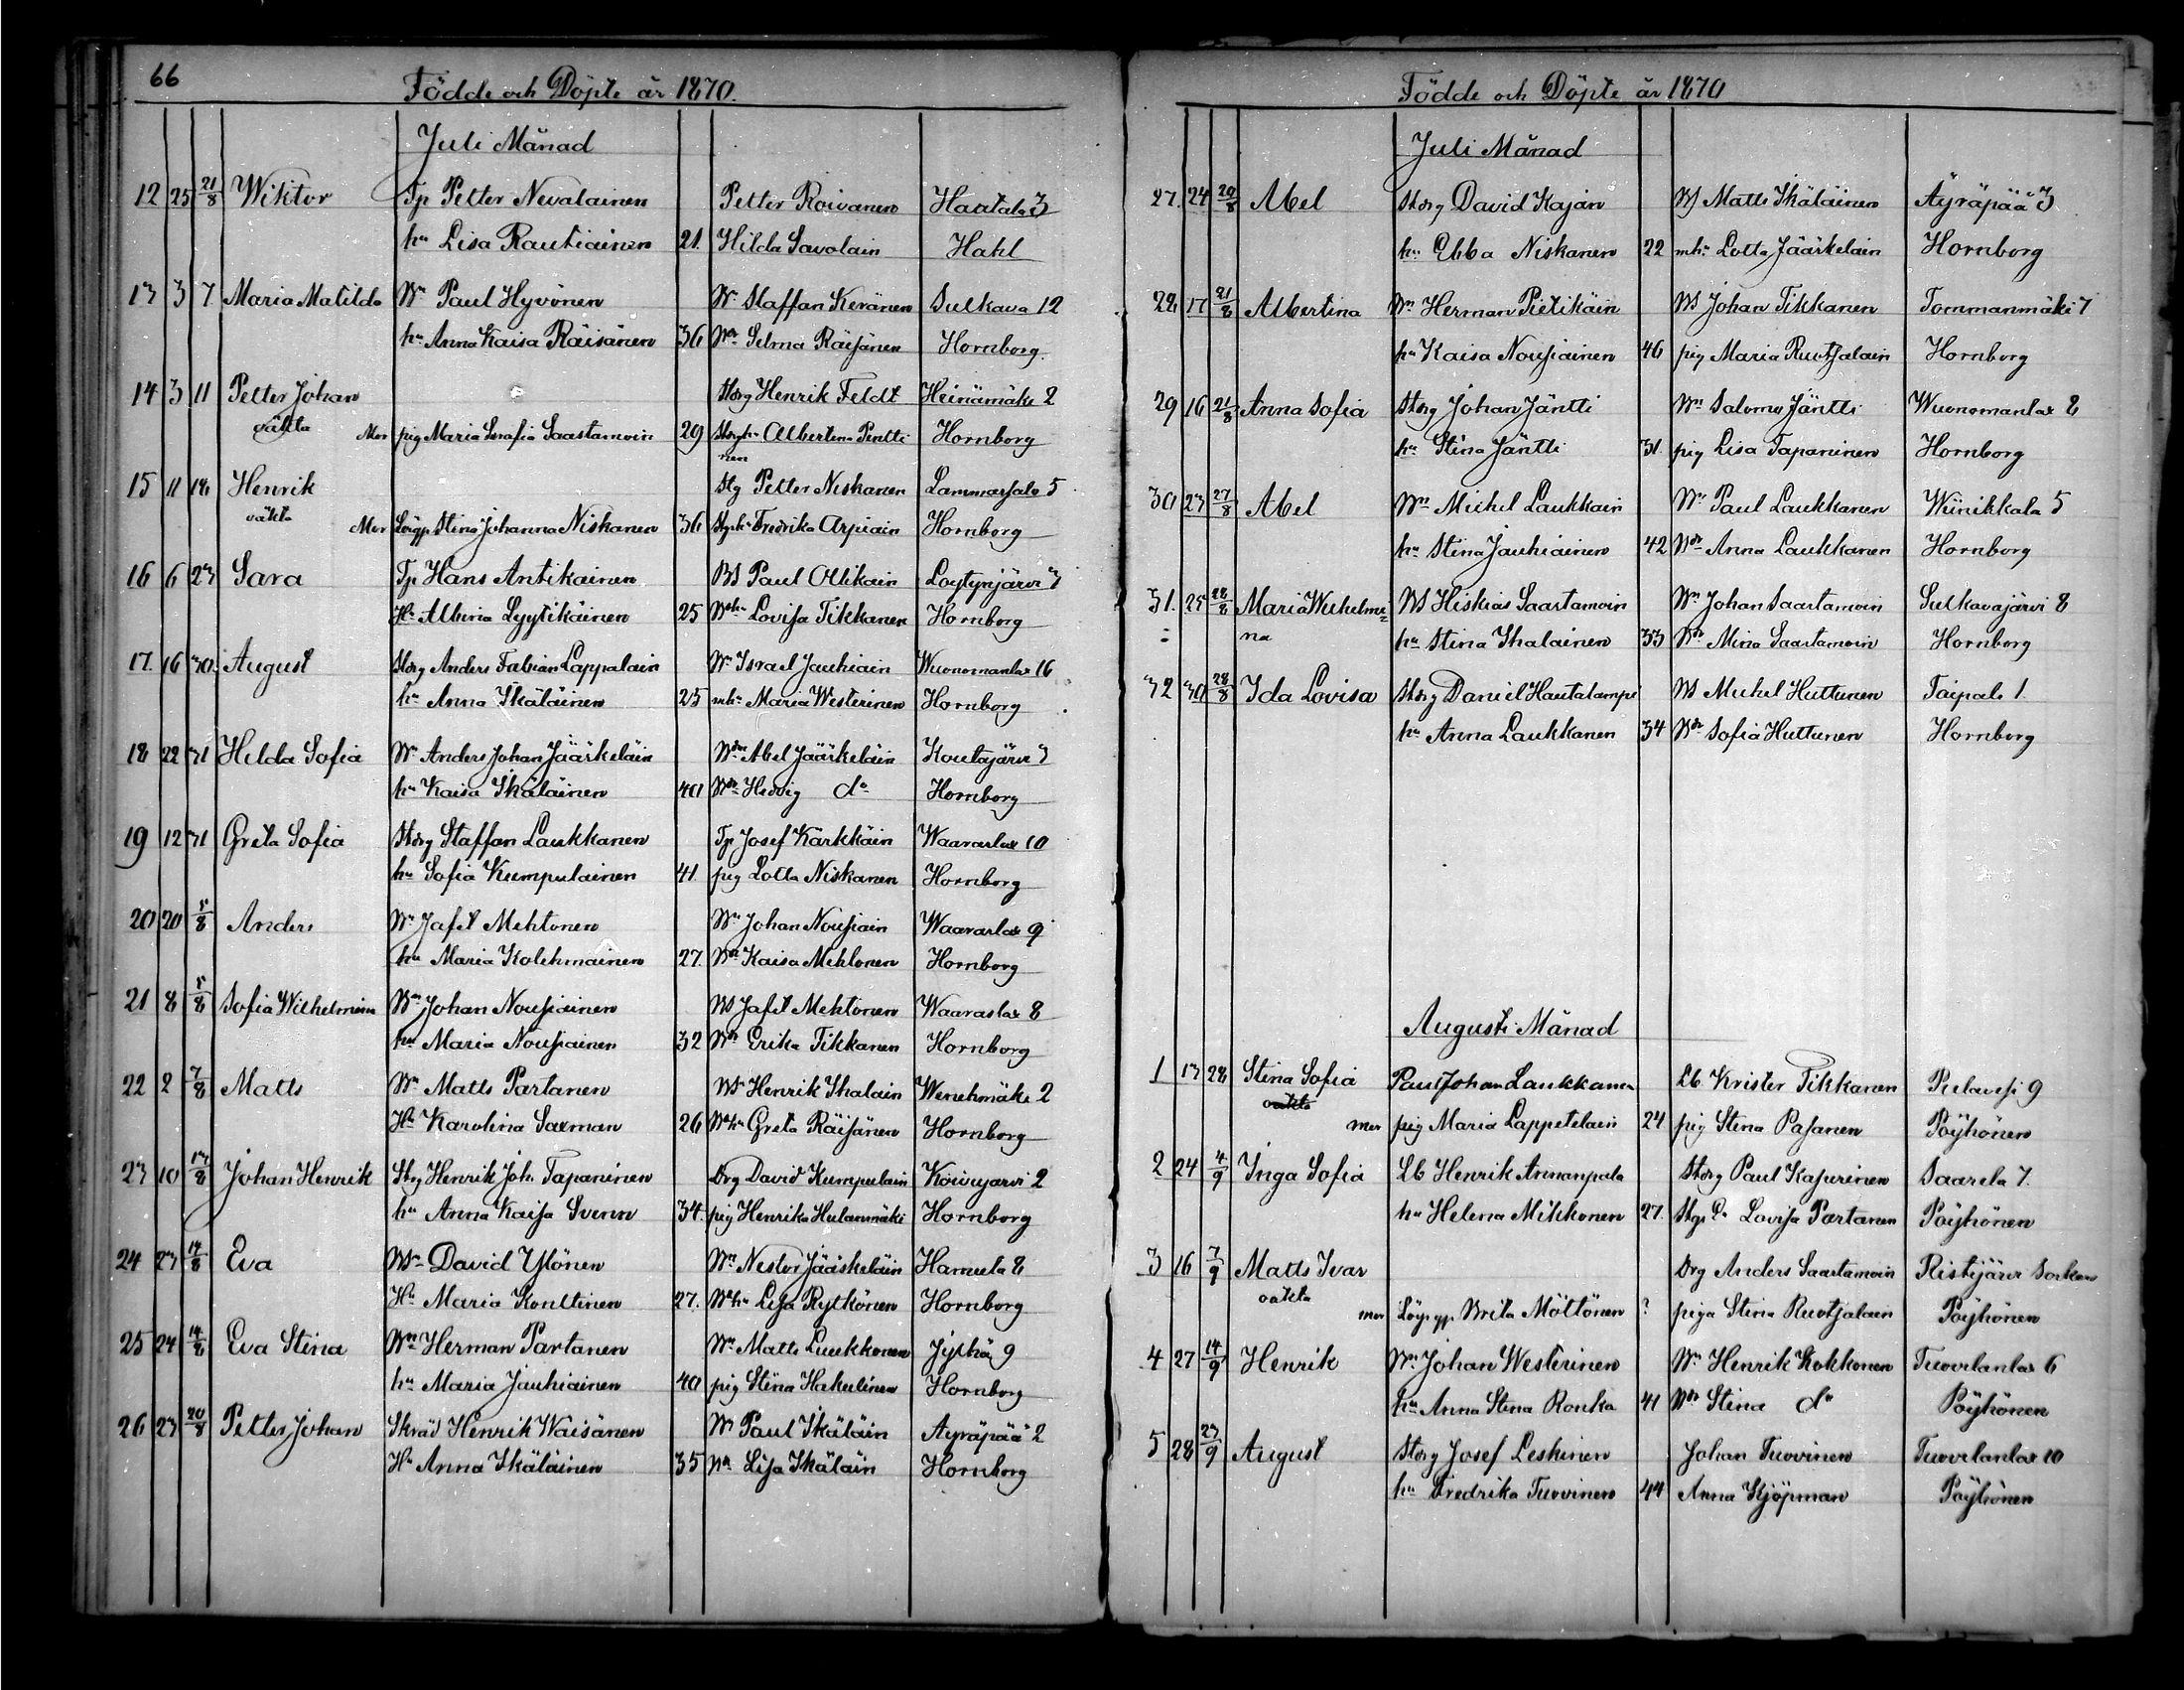 66
Födde och Döpte år 1870.
Juli Månad
12 25 21/8 Wiktor Tp Petter Nevalainen Petter Roivanen Haatala 3
hu Lisa Rautiainen 21. Hilda Savolain Hahl
13 3 7 Maria Matilda Wn Paul Hyvönen Wn Staffan Keränen Sulkava 12
hu Anna Kaisa Räisänen 36 Wdn Selma Räisänen Hornborg.
14 3 11 Petter Johan Storg Henrik Feldt Heinämäki 2
oäkta Mor pig Maria Serafia Saastamoin 29 Albertina Pentti Hornborg
nen
15 11 18 Henrik Stg Petter Niskanen Lammasalo 5
oäkta Mor Stina Johanna Niskanen 36 Fredrika Arpiain Hornborg
16 6 23 Sara Tp Hans Antikainen BS Paul Ollikain Löytynjärvi 3
Hu Albina Lyytikäinen 25 Lovisa Tikkanen Hornborg
17. 16 30. August Storg Anders Fabian Lappalain Wn Israel Jauhiain Wuonomanlax 16
hu Anna Ikäläinen 25 mhu Maria Westerinen Hornborg
18 22 31 Hilda Sofia Wn Anders Johan Jääskeläin Wdm Abel Jääskeläin Koutajärvi 3
hu Kaisa Ikäläinen 40 Wdn Hedvig do Hornborg
19 12 31 Greta Sofia Storg Staffan Laukkanen Tp Josef Kärkkäin Waavarlax 10
hu Sofia Kumpulainen 41. pig Lotta Niskanen Hornborg
20 20 5/8 Anders Wn Jafet Mehtonen Wn Johan Nousiain Waavarlax 9
hu Maria Kolehmainen 27. Wdn Kaisa Mehtonen Hornborg
21 8 5/8 Sofia Wilhelmina Wn Johan Nousiainen WS Jafet Mehtonen Waavaslax 8
hu Maria Nousiainen 32 Wdn Erika Tikkanen Hornborg
22 2 7/8 Matts Wn Matts Partanen WS Henrik Ihalain Wenehmäki 2
Hu Karolina Saxman 26 Greta Räisänen Hornborg
23 10 13/8 Johan Henrik Storg Henrik Joh. Tapaninen Drg David Kumpulain Koivujärvi 2
hu Anna Kaisa Svenn 34. pig Henrika Hulanmäki Hornborg
24 23 14/8 Eva WSn David Ylönen Wn Nestor Jääskeläin Hamula 8
Hu Maria Konttinen 27. Lisa Rytkönen Hornborg
25 24 14/8 Eva Stina Wn Herman Partanen Wn Matts Luukkonen Jylhä 9
hu Maria Jauhiainen 40 pig Stina Hakulinen Hornborg
26 23 20/8 Petter Johan Skräd Henrik Waisänen Wn Paul Ikäläin Äyräpää 2
Hu Anna Ikäläinen 35 Wdn Lisa Ikäläin Hornborg
Födde och Döpte år 1870
Juli Månad
27. 24 20/8 Abel Storg David Kajan WS Matts Ikäläinen Äyräpää 3
hu Ebba Niskanen 22 mhu Lotta Jääskelain Hornborg
28 17 21/8 Albertina Wn Herman Pietikäin WS Johan Tikkanen Tommanmäki 7
hu Kaisa Nousiainen 46 pig Maria Ruotsalain Hornborg
29 16 21/8 Anna Sofia Storg Johan Jäntti Wn Salomo Jäntti Wuonomanlax 8
hu Stina Jäntti 31. pig Lisa Tapaninen Hornborg
30 23 27/8 Abel Wn Michel Laukkain Wn Paul Laukkanen Wiinikkala 5
hu Stina Jauhiainen 42 Wdn Anna Laukkanen Hornborg
31. 25 28/8 Maria Wilhelmi= WS Hiskias Saastamoin Wn Johan Saastamoin Sulkavajärvi 8
na hu Stina Ihalainen 33 Wdn Mina Saastamoin Hornborg
32 30 28/8 Ida Lovisa Storg Daniel Hautalampi WS Mickel Huttunen Taipale 1.
hu Anna Laukkanen 34 Wdn Sofia Huttunen Hornborg
Augusti Månad
1 13 28 Stina Sofia Paul Johan Laukkanen Lb Krister Tikkanen Pielavesi 9
oäkta mor pig Maria Lappetelain 24 pig Stina Pasanen Pöyhönen
2 24 4/9 Inga Sofia Lb Henrik Annanpala Storg Paul Kapurinen Saarela 7.
hu Helena Mikkonen 27. Lovisa Partanen Pöyhönen
3 16 7/9 Matts Ivar Drg Anders Saastamoin Ristijärvi Sorkan
oäkta mor Brita Möttönen ? piga Stina Ruotsalain Pöyhönen
4 27 14/9 Henrik Wn Johan Westerinen Wn Henrik Kokkonen Tuovilanlax 6
hu Anna Stina Ronka 41 Wdn Stina do Pöyhönen
5 28 23/9 August Storg Josef Leskinen Johan Tuovinen Tuovilanlax 10
hu Fredrika Tuovinen 44 Anna Kjöpman Pöyhönen